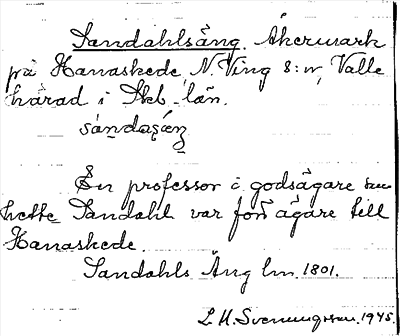 Sandahlsäng. Åkermark
på Hanaskede, N. Ving s:n, Valle
härad i Skb. län.
En professor i godsägare som
hette Sandahl var förr ägare till
Hanaskede.
Sandahls Äng lm. 1801.
L. H. Svenungsson. 1945.